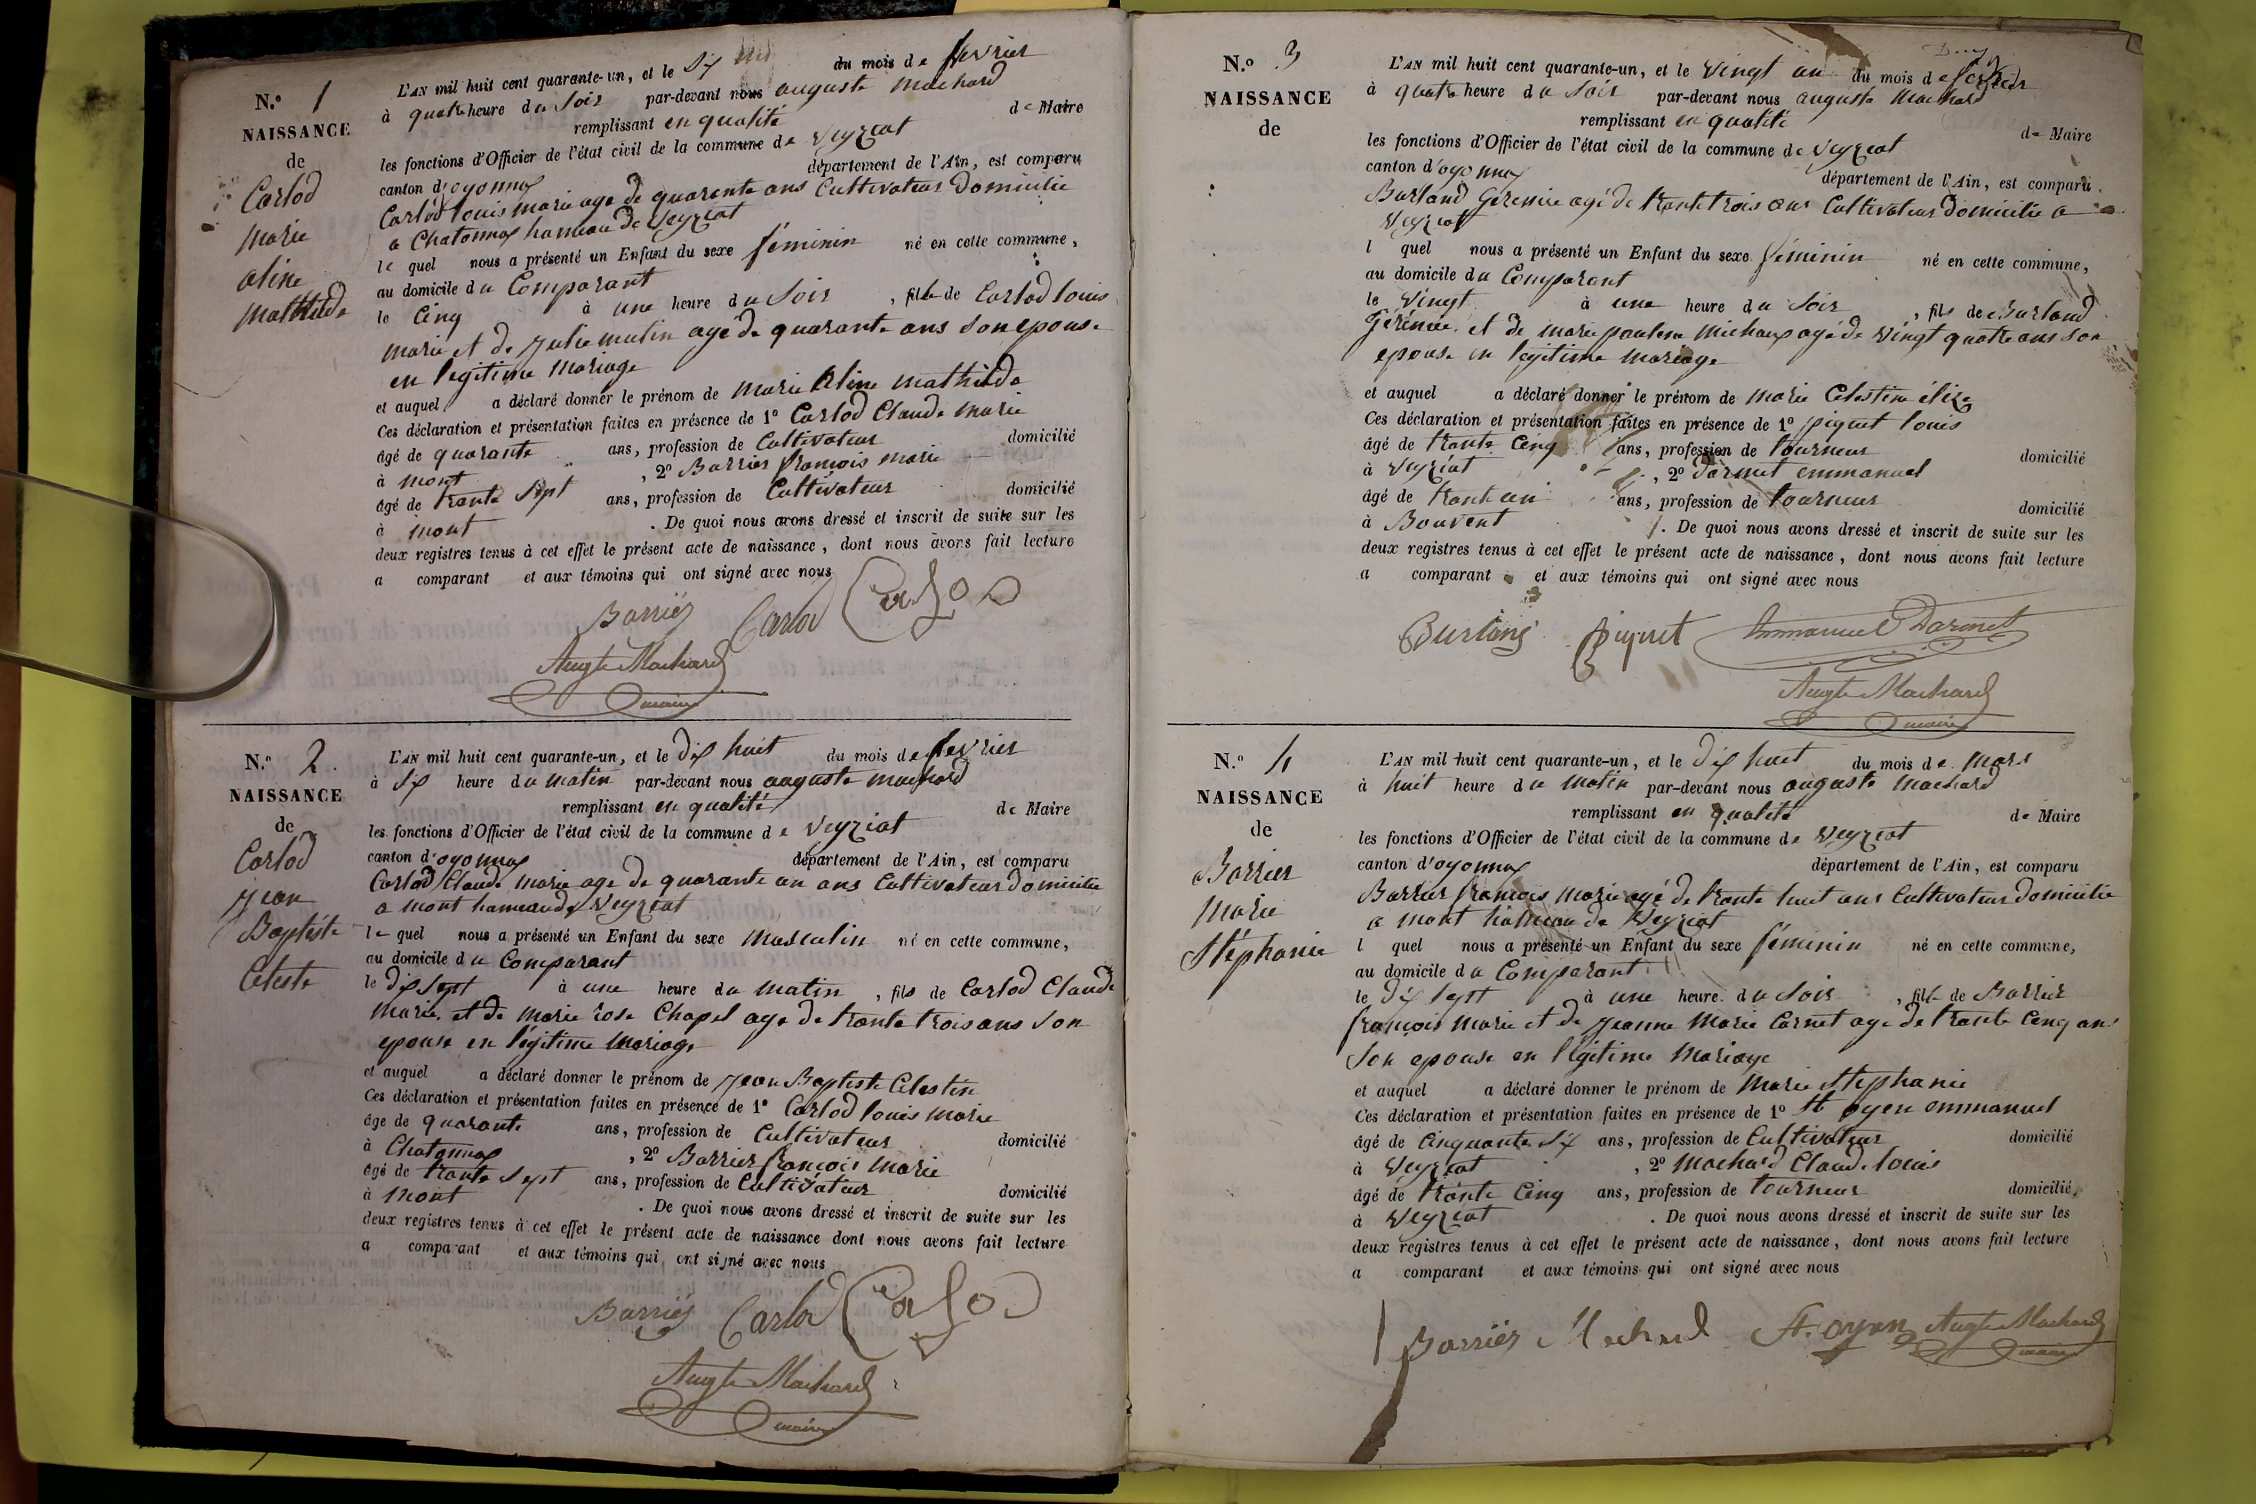 N.º 1
NAISSANCE
de
Carlod
marie
aline
mathilde
L'AN mil huit cent quarante-un, et le Six du mois de fevrier
à quatre heure du Soir par-devant nous auguste machard
remplissant en qualité de Maire
les fonctions d'Officier de l'état civil de la commune de Veyziat
canton d'oyonnax département de l'Ain, est comparu
Carlod louis marie age de quarante ans Cultivateur Domicilie
a Chatonnax hameau de Veyziat
le quel nous a présenté un Enfant du sexe féminin né en cette commune,
au domicile du Comparant
le Cinq à une heure du Soir, fille de Carlod louis
marie et de Julie mutin agé de quarante ans Son epouse
en legitime mariage
et auquel a déclaré donner le prénom de marie Aline mathilde
Ces déclaration et présentation faites en présence de 1º Carlod Claude marie
âgé de quarante ans, profession de Cultivateur domicilié
à mont, 2º Barrier françois marie
âgé de trente Sept ans, profession de Cultivateur domicilié
à mont. De quoi nous avons dressé et inscrit de suite sur les
deux registres tenus à cet effet le présent acte de naissance, dont nous avons fait lecture
a comparant et aux témoins qui ont signé avec nous
Barrier Carlod Carlod
Augte Machard
maire
N.º 2
NAISSANCE
de
Carlod
Jean
Baptiste
Celeste
L'AN mil huit cent quarante-un, et le dix huit du mois de fevrier
à Six heure du matin par-devant nous auguste machard
remplissant en qualité de Maire
les fonctions d'Officier de l'état civil de la commune de Veyziat
canton d'oyonnax département de l'Ain, est comparu
Carlod Claude marie age de quarante un ans Cultivateur domicilie
a mont hameau de Veyziat
le quel nous a présenté un Enfant du sexe Masculin né en cette commune,
au domicile du Comparant
le dix Sept à une heure du matin, fils de Carlod Claude
marie et de marie rose Chapel age de trente trois ans Son
epouse en légitime mariage
et auquel a déclaré donner le prénom de Jean Baptiste Celestin
Ces déclaration et présentation faites en présence de 1º Carlod louis marie
âge de quarante ans, profession de Cultivateur domicilié
à Chatonnax, 2º Barrier françois marie
âgé de trente Sept ans, profession de Cultivateur domicilié
à mont. De quoi nous avons dressé et inscrit de suite sur les
deux registres tenus à cet effet le présent acte de naissance dont nous avons fait lecture
a comparant et aux témoins qui ont signé avec nous
Barrier Carlod Carlod
Augte Machard
maire
N.º 3
NAISSANCE
de
L'AN mil huit cent quarante-un, et le vingt un du mois de fevrier
à quatre heure du Soir par-devant nous auguste machard
remplissant en qualité de Maire
les fonctions d'Officier de l'état civil de la commune de Veyziat
canton d'oyonnax département de l'Ain, est comparu
Burland Géremie agé de trente trois ans Cultivateur domicilie a
Veyziat
l quel nous a présenté un Enfant du sexe féminin né en cette commune,
au domicile du Comparant
le vingt à une heure du Soir, fils de Burland
Gérémie et de marie paulene michaux agé de vingt quatre ans son
epouse en legitime mariage
et auquel a déclaré donner le prénom de marie Celestine élize
Ces déclaration et présentation faites en présence de 1º piquet louis
âgé de trente Cinq ans, profession de tourneur domicilié
à Veyziat, 2º Darmet emmanuel
âgé de trente un ans, profession de tourneur domicilié
à Bouvent. De quoi nous avons dressé et inscrit de suite sur les
deux registres tenus à cet effet le présent acte de naissance, dont nous avons fait lecture
a comparant et aux témoins qui ont signé avec nous
Burland piquet Emmanuel Darmet
Augte Machard
maire
N.º 4
NAISSANCE
de
Barrier
Marie
Stéphanie
L'AN mil huit cent quarante-un, et le dix huit du mois de mars
à huit heure du matin par-devant nous auguste machard
remplissant en qualité de Maire
les fonctions d'Officier de l'état civil de la commune de Veyziat
canton d'oyonnax département de l'Ain, est comparu
Barrier françois marie agé de trente huit ans Cultivateur domicilie
a mont hameau de Veyziat
l quel nous a présenté un Enfant du sexe féminin né en cette commune,
au domicile du Comparant
le dix Sept à une heure du Soir, fille de Barrier
françois marie et de Jeanne Marie Carnet age de trente Cinq ans
Son epouse en légitime mariage
et auquel a déclaré donner le prénom de Marie Stephanie
Ces déclaration et présentation faites en présence de 1º St oyen emmanuel
âgé de Cinquante Six ans, profession de Cultivateur domicilié
à Veyziat, 2º machard Claude louis
âgé de trente Cinq ans, profession de tourneur domicilié
à Veyziat. De quoi nous avons dressé et inscrit de suite sur les
deux registres tenus à cet effet le présent acte de naissance, dont nous avons fait lecture
a comparant et aux témoins qui ont signé avec nous
Barrier Machard St. oyen Augte Machard
maire